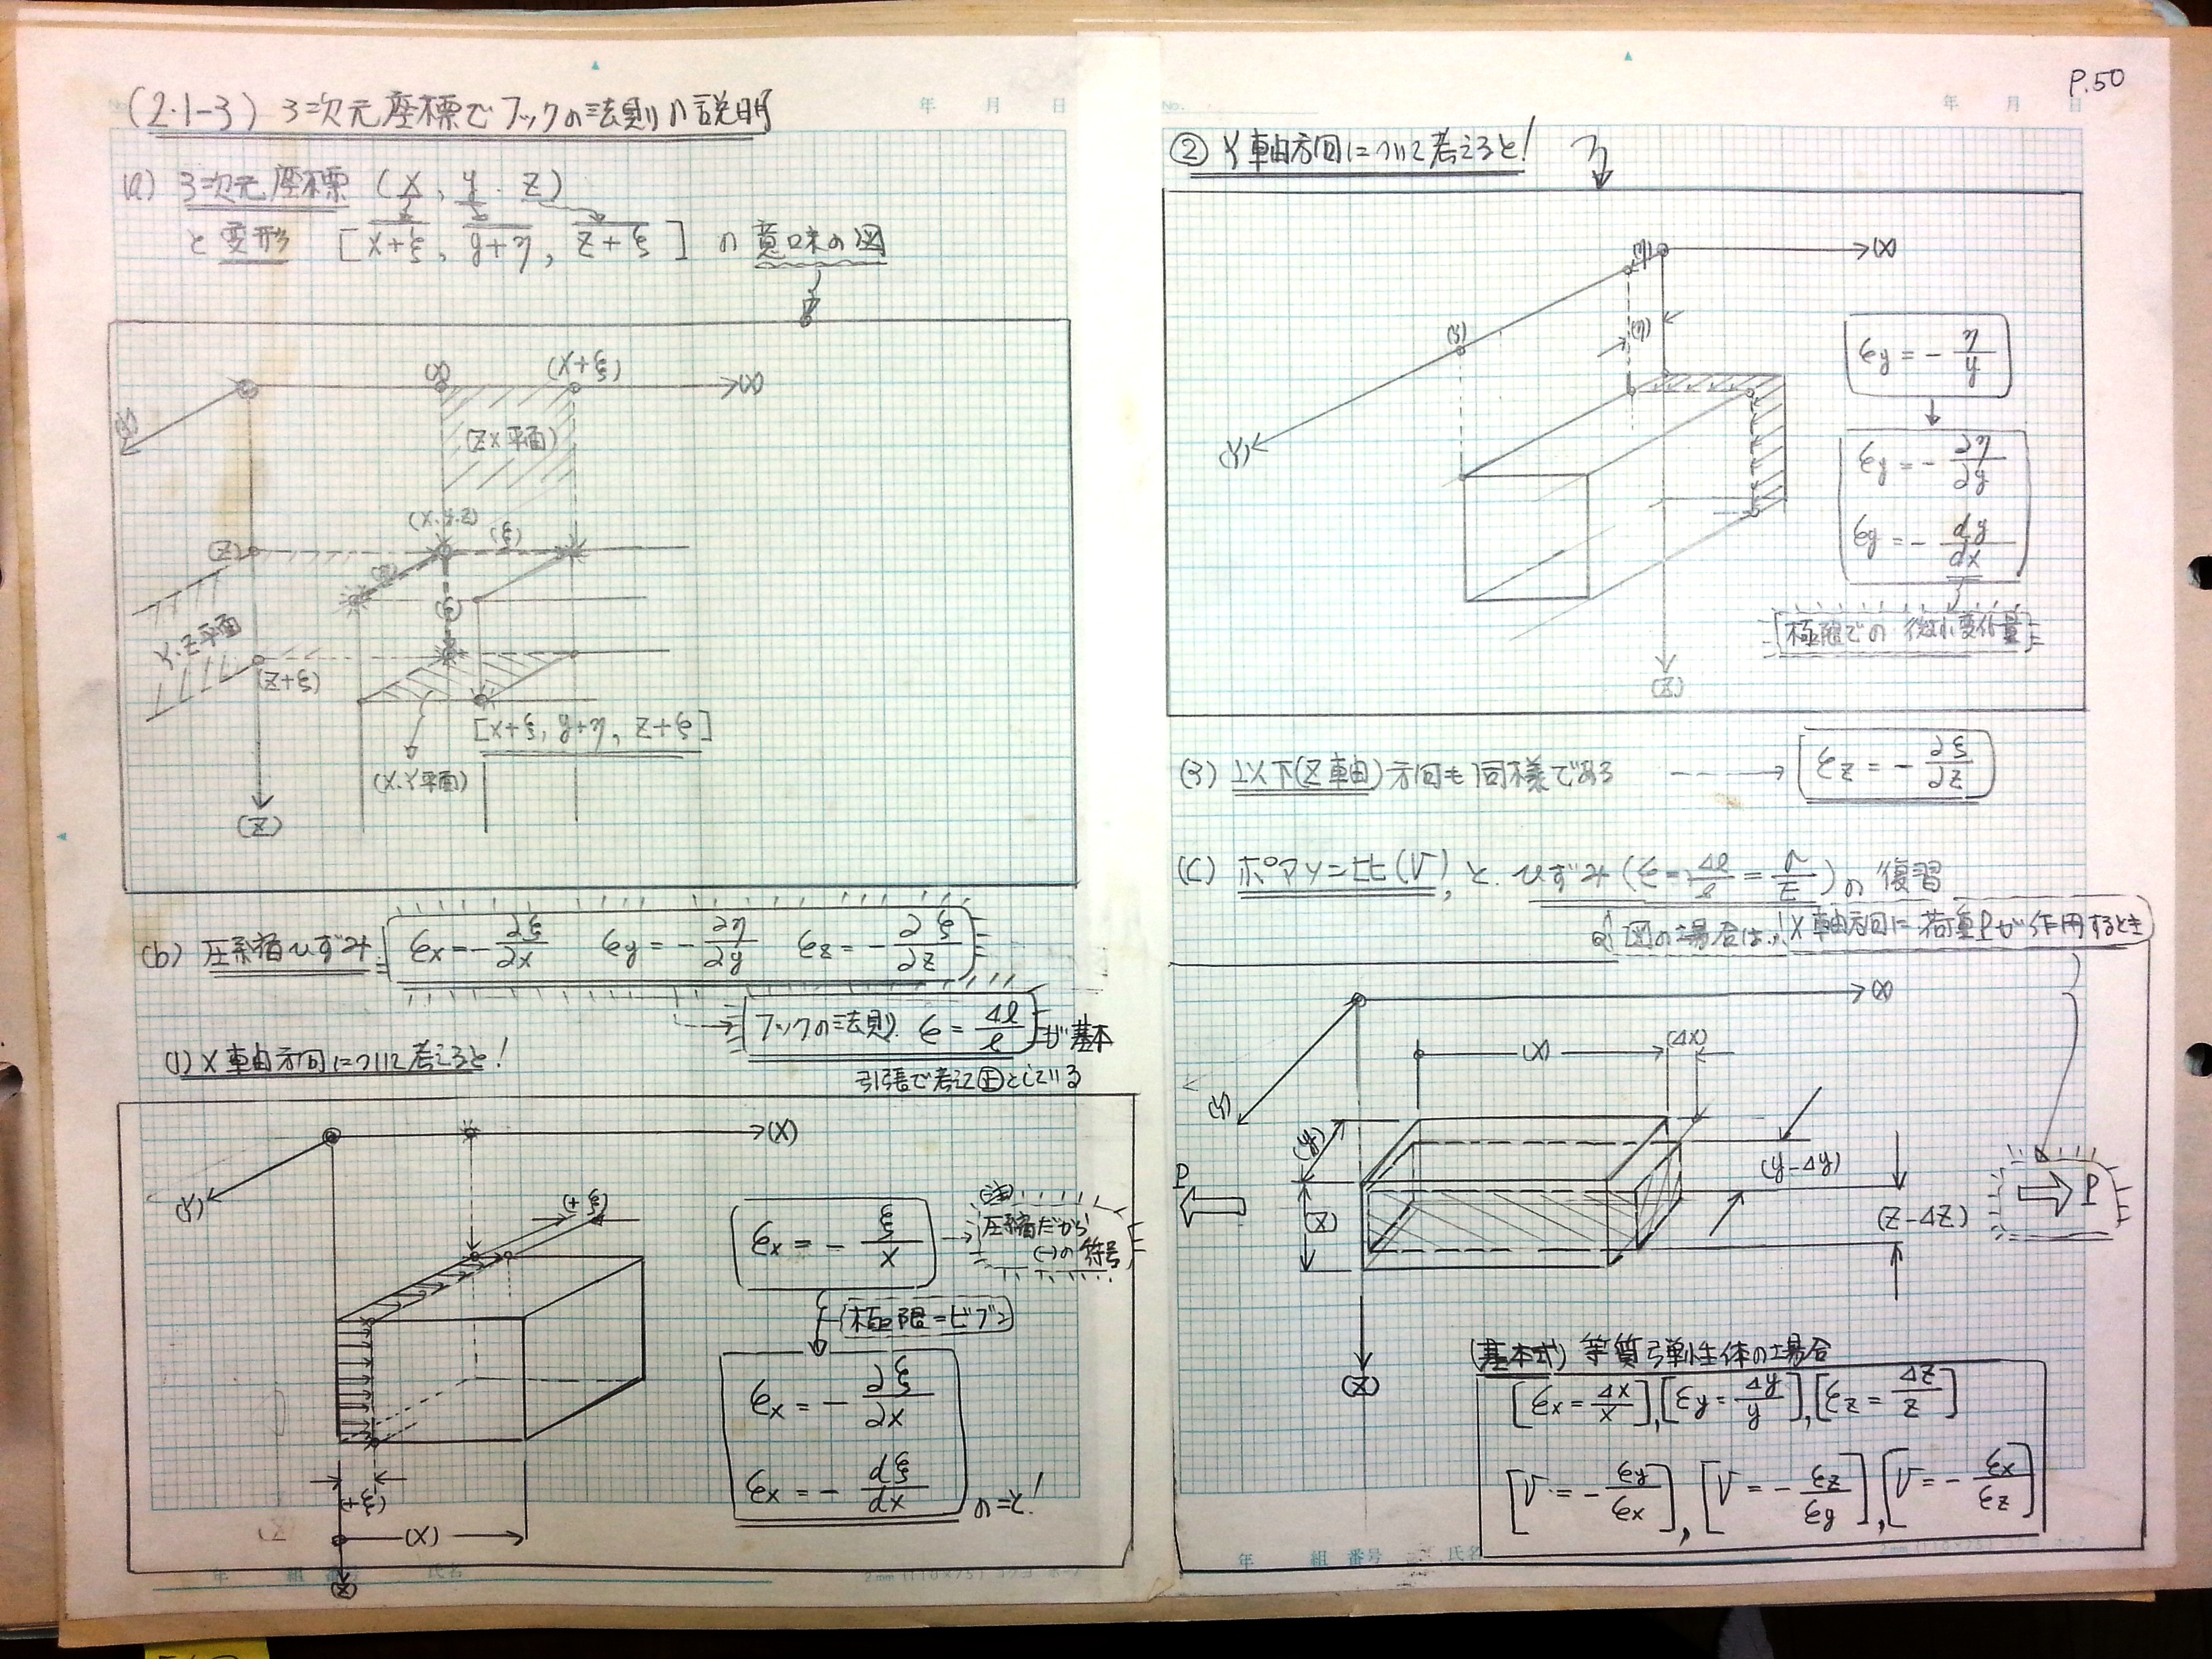 (2.1-3) 3次元座標でフックの法則の説明
(a) 3次元座標 (x, y, z)
と変形 [x+ξ, y+η, z+ξ] の意味の図
(X)
(X+ξ)
(X)
(Y)
(ZX平面)
(x.y.z)
(ξ)
(Z)
(η)
(ξ)
Y.Z平面
(Z+ξ)
[x+ξ, y+η, z+ξ]
(X.Y平面)
(Z)
(b) 圧縮ひずみ εx=-∂ξ/∂x εy=-∂η/∂y εz=-∂ξ/∂z
フックの法則. ε=Δl/l が基本
引張で考えて正としている
(1) X軸方向について考えると!
(X)
(Y)
(+ξ)
εx=-ξ/x
(注)
圧縮だから
(-)の符号
極限=ビブン
εx=-∂ξ/∂x
εx=-dξ/dx のこと!
(+ξ)
(X)
(Z)
年 組 番号 氏名
P.50
No. 年 月 日
② Y軸方向について考えると!
(η)
(X)
(y)
(η)
(Y)
εy=-η/y
εy=-∂η/∂y
εy=-dy/dx
極限での微小変化量
(Z)
(3) 以下(Z軸)方向も同様である εz=-∂ξ/∂z
(C) ポアソン比(ν), と. ひずみ(ε=Δl/l=σ/E)の復習
図の場合は,! X軸方向に荷重Pが作用するとき
(X)
(X)
(ΔX)
(Y)
(y)
(y-Δy)
P
(Z)
(Z-ΔZ)
P
(Z)
(基本式) 等質弾性体の場合
[εx=Δx/x], [εy=Δy/y], [εz=Δz/z]
[ν=-εy/εx], [ν=-εz/εy], [ν=-εx/εz]
年 組 番号 氏名